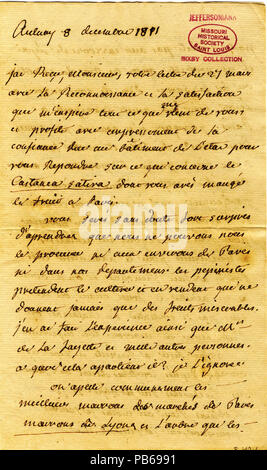 JEFFERSONIANA
MISSOURI
HISTORICAL
SOCIETY
SAINT LOUIS
BIXBY COLLECTION
Aulnay 8 decembre 1811
j'ai Reçu, Monsieur, votre lettre du 27 mars
avec la Reconnoissance et la satisfaction
que m'inspire tout ce qui me vient de vous
et profite avec empressement de la
confiance d'un bâtiment de l'etat pour
vous Repondre sur ce que concerne le
Castanea sativa dont vous avés mangé
le fruit a Paris.
vous serés sans doute bien surpris
d'apprendre que nous ne pouvons nous
le procurer ni aux environs de Paris
ni dans nos departements. les pepinieristes
pretendent le cultiver et n'en vendent que ne
donnent jamais que des fruits miserables.
j'en ai fait l'experience ainsi que Mr
de La fayette et mille autres personnes.
a quoi cela apartient il? je l'ignore
on apelle communement les
meilleurs marrons des marchés de Paris
marrons de Lyons et l'arbre qui les
alamy
Image ID: PB6991
www.alamy.com